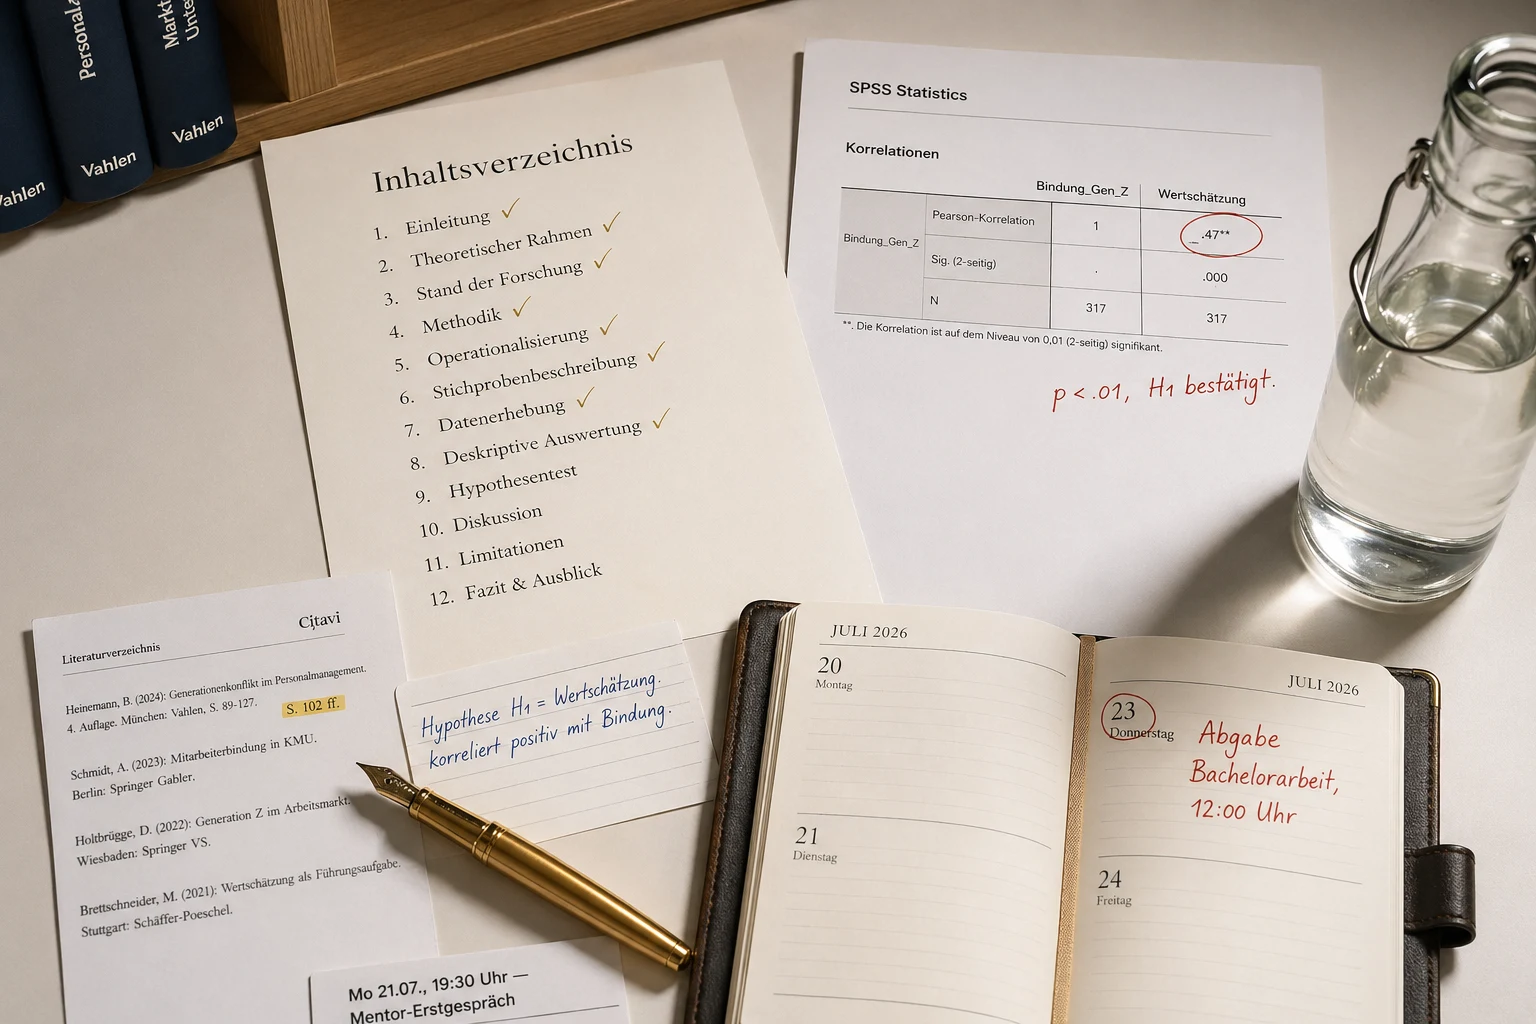 Personal
Vahlen
Vahlen
Vahlen
Inhaltsverzeichnis
1. Einleitung ✓
2. Theoretischer Rahmen ✓
3. Stand der Forschung ✓
4. Methodik ✓
5. Operationalisierung ✓
6. Stichprobenbeschreibung ✓
7. Datenerhebung ✓
8. Deskriptive Auswertung ✓
9. Hypothesentest
10. Diskussion
11. Limitationen
12. Fazit & Ausblick
SPSS Statistics
Korrelationen
Bindung_Gen_Z Wertschätzung
Bindung_Gen_Z Pearson-Korrelation 1 _.47**
Sig. (2-seitig) . .000
N 317 317
**. Die Korrelation ist auf dem Niveau von 0,01 (2-seitig) signifikant.
p < .01, H1 bestätigt.
Citavi
Literaturverzeichnis
Heinemann, B. (2024): Generationenkonflikt im Personalmanagement.
4. Auflage. München: Vahlen, S. 89-127. S. 102 ff.
Schmidt, A. (2023): Mitarbeiterbindung in KMU.
Berlin: Springer Gabler.
Holtbrügge, D. (2022): Generation Z im Arbeitsmarkt.
Wiesbaden: Springer VS.
Brettschneider, M. (2021): Wertschätzung als Führungsaufgabe.
Stuttgart: Schäffer-Poeschel.
Hypothese H1 = Wertschätzung.
korreliert positiv mit Bindung.
Mo 21.07., 19:30 Uhr —
Mentor-Erstgespräch
JULI 2026
20
Montag
21
Dienstag
JULI 2026
23
Donnerstag
Abgabe
Bachelorarbeit,
12:00 Uhr
24
Freitag